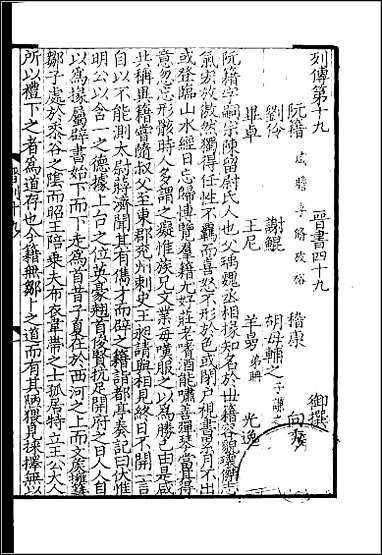 列傳第十九 晉書四十九 御撰
阮籍 咸 瞻 孚 脩 放 裕 嵇康 向秀
劉伶 謝鯤 胡母輔之 子謙之
畢卓 王尼 羊曼 弟聃 光逸
阮籍字嗣宗陳留尉氏人也父瑀魏丞相掾知名於世籍容貌瓌傑志
氣宏放傲然獨得任性不羈而喜怒不形於色或閉戶視書累月不出
或登臨山水經日忘歸博覽羣籍尤好莊老嗜酒能嘯善彈琴當其得
意忽忘形骸時人多謂之癡惟族兄文業每嘆服之以為勝己由是咸
共稱異籍嘗隨叔父至東郡兖州刺史王昶請與相見終日不開一言
自以不能測太尉蔣濟聞其有儁才而辟之籍詣都亭奏記曰伏惟
明公以含一之德據上台之位英豪翹首俊賢抗足開府之日人人自
以為掾屬辟書始下而下走為首昔子夏在於西河之上而文侯擁篲
鄒子處於黍谷之陰而昭王陪乗夫布衣韋帶之士孤居特立王公大人
所以禮下之者為道存也今籍無鄒卜之道而有其陋猥見採擇無以